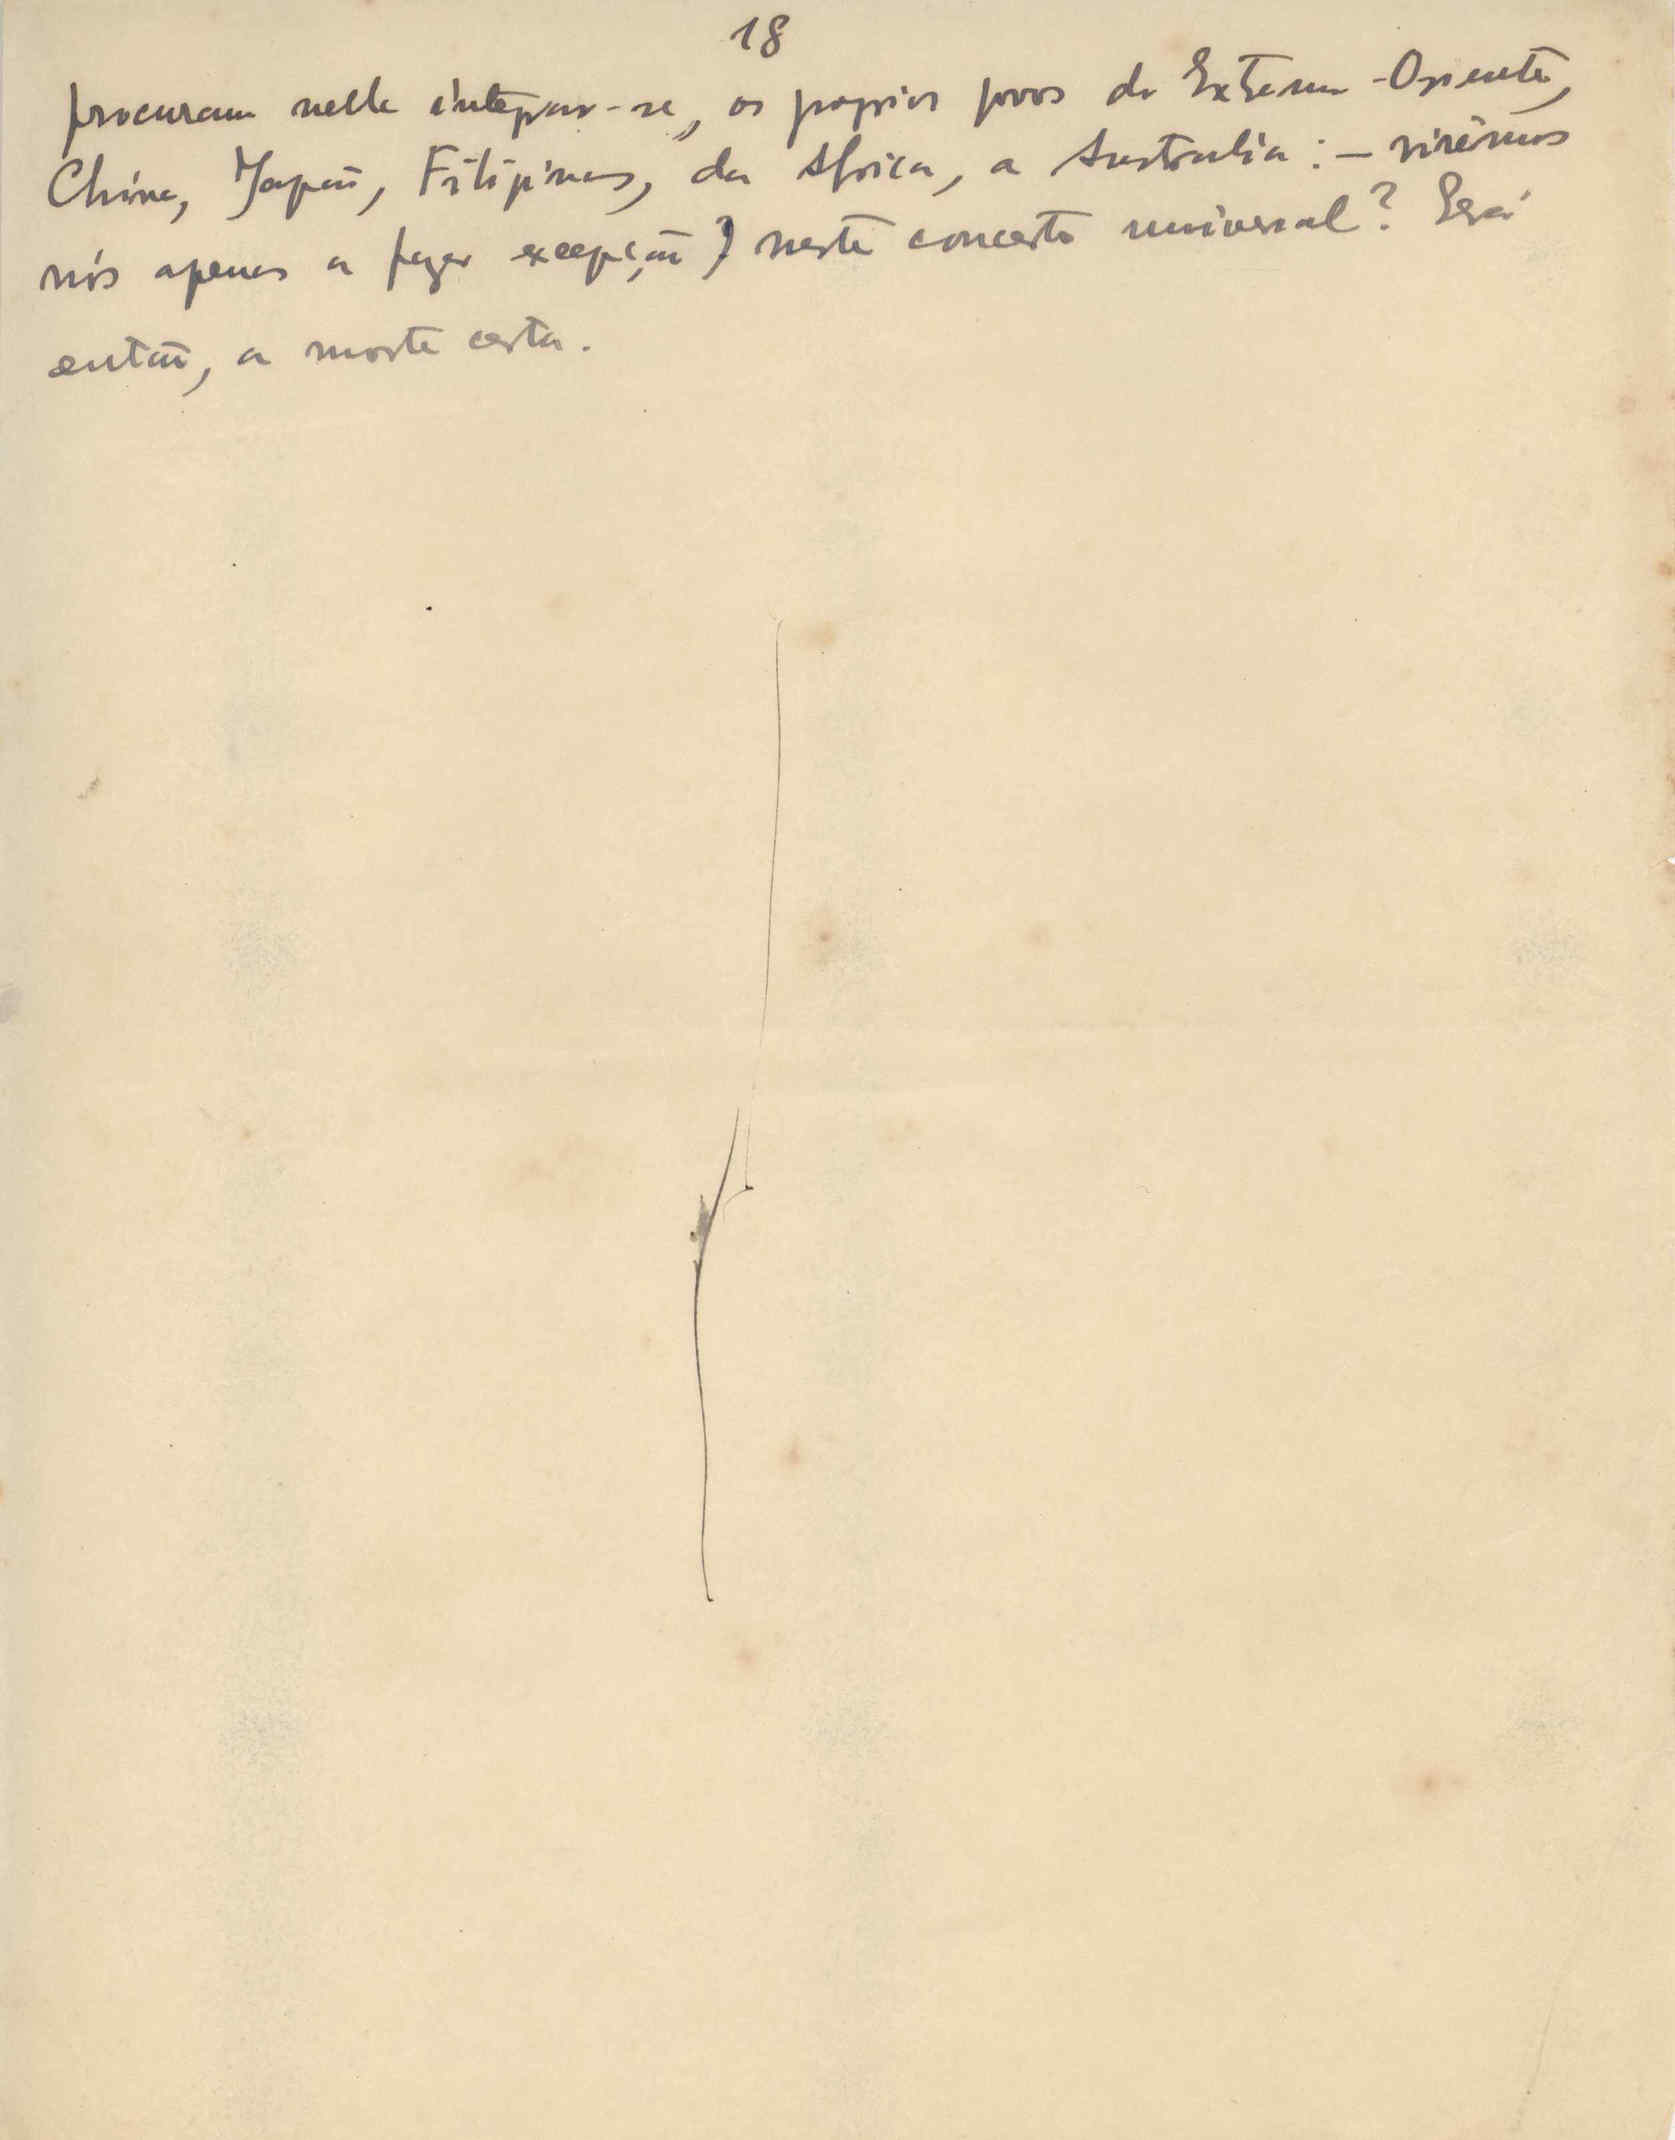 18
procuram nelle integrar-se, os proprios povos do Extremo-Oriente,
China, Japão, Filipinas, da Africa, a Australia: – virêmos
nós apenas a fazer excepção neste concerto universal? Será
então, a morte certa.